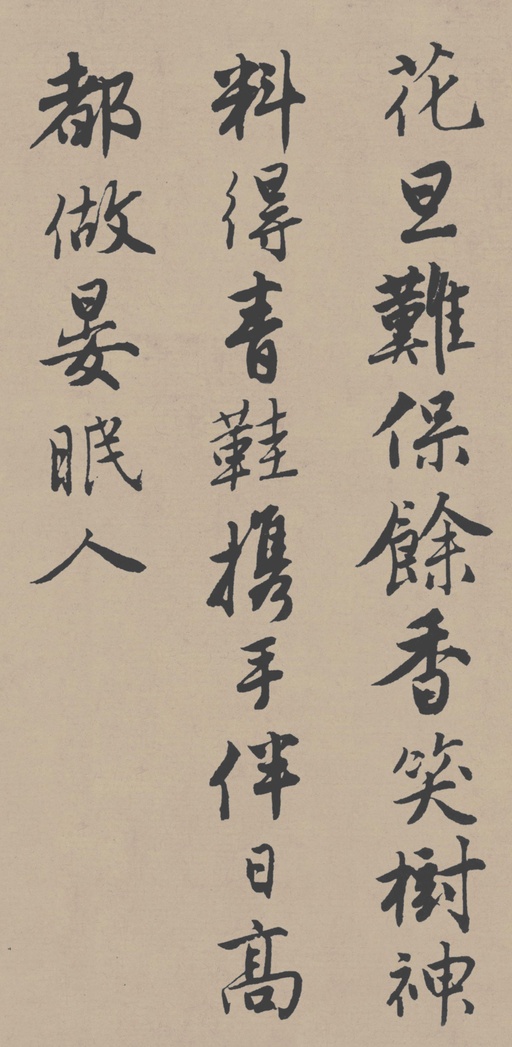 花旦難保餘香笑樹神
料得青鞋携手伴日高
都做晏眠人